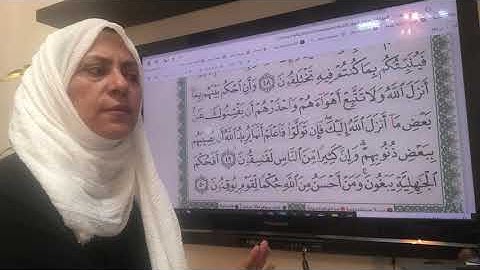 فَيُنَبِّئُكُم بِمَا كُنتُمْ فِيهِ تَخْتَلِفُونَ ٤٨ وَأَنِ ٱحْكُم بَيْنَهُم بِمَا
أَنزَلَ ٱللَّهُ وَلَا تَتَّبِعْ أَهْوَآءَهُمْ وَٱحْذَرْهُمْ أَن يَفْتِنُوكَ عَنۢ
بَعْضِ مَآ أَنزَلَ ٱللَّهُ إِلَيْكَ فَإِن تَوَلَّوْا۟ فَٱعْلَمْ أَنَّمَا يُرِيدُ ٱللَّهُ أَن يُصِيبَهُم
بِبَعْضِ ذُنُوبِهِمْ وَإِنَّ كَثِيرًا مِّنَ ٱلنَّاسِ لَفَـٰسِقُونَ ٤٩ أَفَحُكْمَ
ٱلْجَـٰهِلِيَّةِ يَبْغُونَ وَمَنْ أَحْسَنُ مِنَ ٱللَّهِ حُكْمًا لِّقَوْمٍ يُوقِنُونَ ٥٠